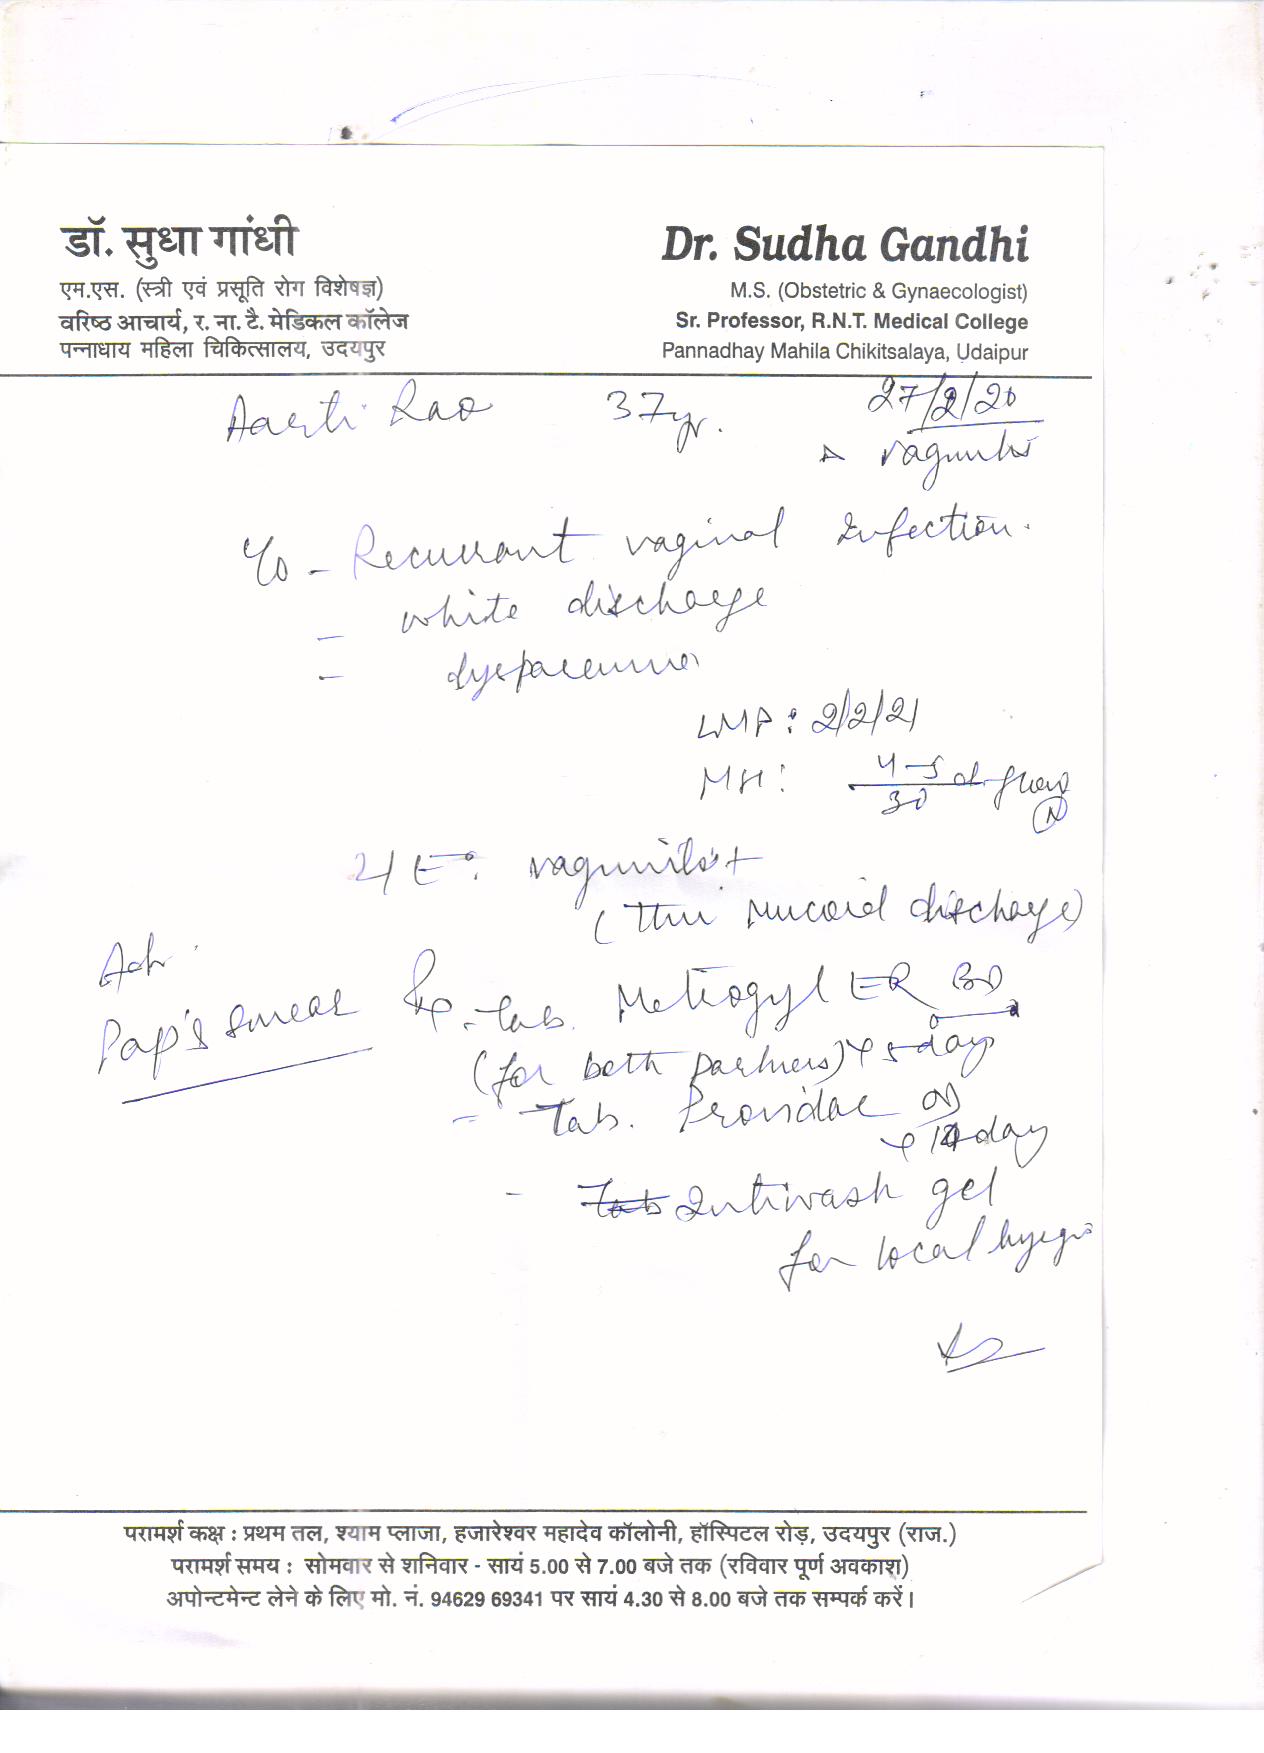 डॉ. सुधा गांधी
एम.एस. (स्त्री एवं प्रसूति रोग विशेषज्ञ)
वरिष्ठ आचार्य, र. ना. टै. मेडिकल कॉलेज
पन्नाधाय महिला चिकित्सालय, उदयपुर
Dr. Sudha Gandhi
M.S. (Obstetric & Gynaecologist)
Sr. Professor, R.N.T. Medical College
Pannadhay Mahila Chikitsalaya, Udaipur
Aarti Rao 37yr. 27/2/20
∆ vaginitis
c/o - Recurrant vaginal infection.
- white discharge
- dyspareunia
LMP: 2/2/21
MH: 4-5/30 d flow (N)
vaginitis +
(thin mucoid discharge)
Adv
Pap's smear
Rx - Tab. Metrogyl ER BD
(for both partners) x 5 days
- Tab. OD
x 14 day
- Intiwash gel
for local
परामर्श कक्ष : प्रथम तल, श्याम प्लाजा, हजारेश्वर महादेव कॉलोनी, हॉस्पिटल रोड़, उदयपुर (राज.)
परामर्श समय : सोमवार से शनिवार - सायं 5.00 से 7.00 बजे तक (रविवार पूर्ण अवकाश)
अपोन्टमेन्ट लेने के लिए मो. नं. 94629 69341 पर सायं 4.30 से 8.00 बजे तक सम्पर्क करें।